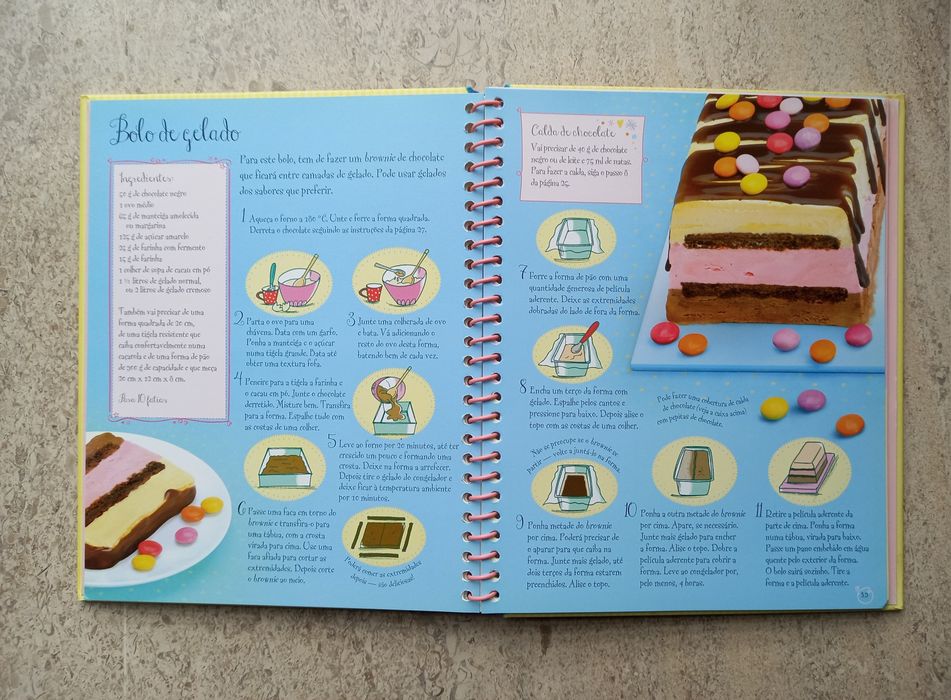 Bolo de gelado
Ingredientes:
50 g de chocolate negro
1 ovo médio
65 g de manteiga amolecida
ou margarina
125 g de açúcar amarelo
25 g de farinha com fermento
15 g de farinha
1 colher de sopa de cacau em pó
1 ½ litros de gelado normal,
ou 2 litros de gelado cremoso
Também vai precisar de uma
forma quadrada de 20 cm,
de uma tigela resistente que
caiba confortavelmente numa
caçarola e de uma forma de pão
de 900 g de capacidade e que meça
20 cm x 12 cm x 8 cm.
Para 10 fatias
Para este bolo, tem de fazer um brownie de chocolate
que ficará entre camadas de gelado. Pode usar gelados
dos sabores que preferir.
1 Aqueça o forno a 180 °C. Unte e forre a forma quadrada.
Derreta o chocolate seguindo as instruções da página 27.
2 Parta o ovo para uma
chávena. Bata com um garfo.
Ponha a manteiga e o açúcar
numa tigela grande. Bata até
obter uma textura fofa.
3 Junte uma colherada de ovo
e bata. Vá adicionando o
resto do ovo desta forma,
batendo bem de cada vez.
4 Peneire para a tigela a farinha e
o cacau em pó. Junte o chocolate
derretido. Misture bem. Transfira
para a forma. Espalhe tudo com
as costas de uma colher.
5 Leve ao forno por 20 minutos, até ter
crescido um pouco e formando uma
crosta. Deixe na forma a arrefecer.
Depois tire o gelado do congelador e
deixe ficar à temperatura ambiente
por 10 minutos.
6 Passe uma faca em torno do
brownie e transfira-o para
uma tábua, com a crosta
virada para cima. Use uma
faca afiada para cortar as
extremidades. Depois corte
o brownie ao meio.
Poderá comer as extremidades
depois — são deliciosas!
Calda de chocolate
Vai precisar de 40 g de chocolate
negro ou de leite e 75 ml de natas.
Para fazer a calda, siga o passo 8
da página 25.
7 Forre a forma de pão com uma
quantidade generosa de película
aderente. Deixe as extremidades
dobradas do lado de fora da forma.
8 Encha um terço da forma com
gelado. Espalhe pelos cantos e
pressione para baixo. Depois alise o
topo com as costas de uma colher.
Pode fazer uma cobertura de calda
de chocolate (veja a caixa acima)
com pepitas de chocolate.
Não se preocupe se o brownie se
partir — volte a juntá-lo na forma.
9 Ponha metade do brownie
por cima. Poderá precisar de
o aparar para que caiba na
forma. Junte mais gelado, até
dois terços da forma estarem
preenchidos. Alise o topo.
10 Ponha a outra metade do brownie
por cima. Apare, se necessário.
Junte mais gelado para encher
a forma. Alise o topo. Dobre a
película aderente para cobrir a
forma. Leve ao congelador por,
pelo menos, 4 horas.
11 Retire a película aderente da
parte de cima. Ponha a forma
numa tábua, virada para baixo.
Passe um pano embebido em água
quente pelo exterior da forma.
O bolo sairá sozinho. Tire a
forma e a película aderente.